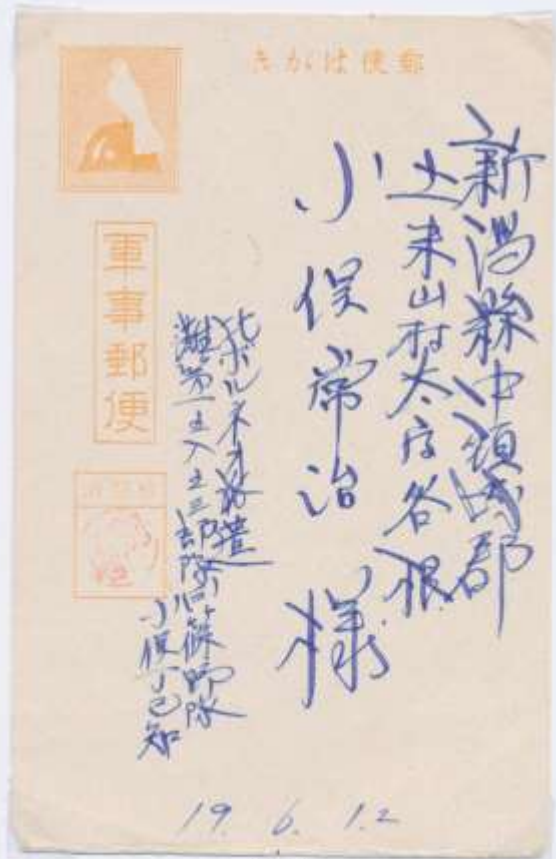 郵便はがき
軍事郵便
新潟縣中頸城郡
上米山村大字谷根
小俣常治 様
北ボルネオ派遣
灘第一五八五三部隊
小俣
19. 6. 12